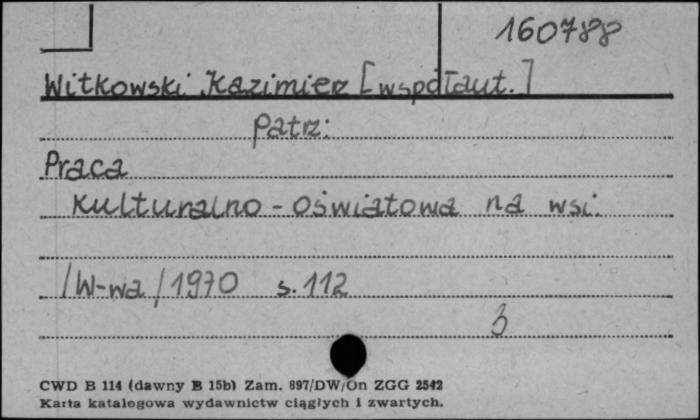 160788
Witkowski Kazimierz [współaut.]
Patrz:
Praca
Kulturalno - oświatowa na wsi.
/W-wa/ 1970 s. 112
3
CWD B 114 (dawny B 15b) Zam. 897/DW/On ZGG 2542
Karta katalogowa wydawnictw ciągłych i zwartych.